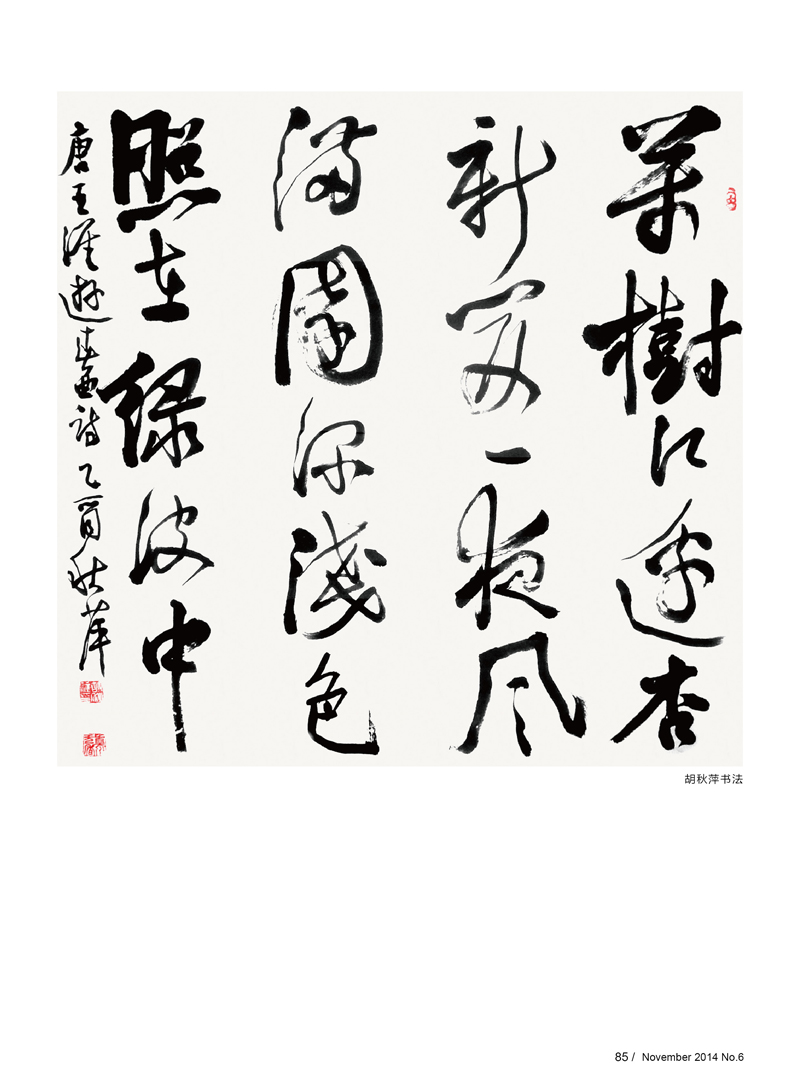 萬樹江邊杏
新開一夜風
滿園深淺色
照在綠波中
唐王涯遊春曲詩乙酉秋萍
胡秋萍书法
85 / November 2014 No.6